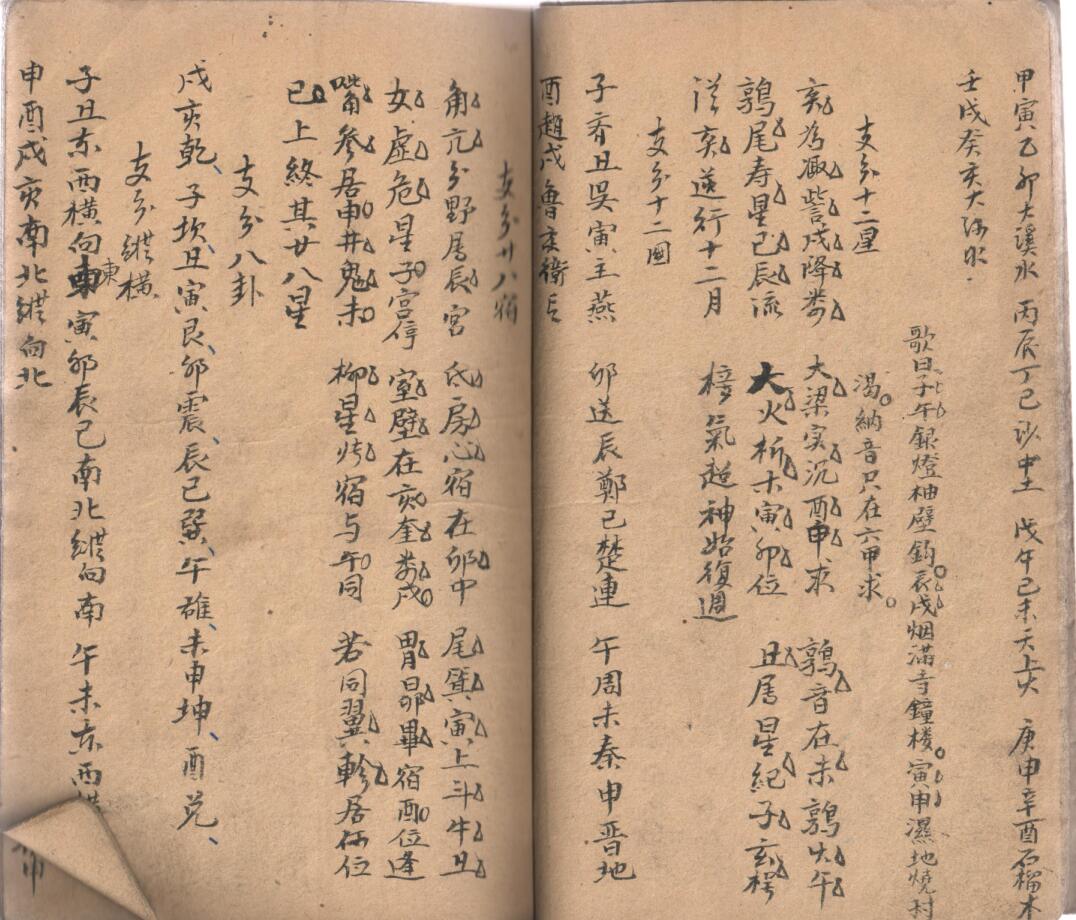 甲寅乙卯大溪水 丙辰丁巳沙中土 戊午己未天上火 庚申辛酉石榴木
壬戌癸亥大海水
歌曰子午銀燈袖壁鈎辰戌烟滿寺鐘楼寅申濕地燒村
渴納音只在六甲求
支分十二星
亥为娵訾戌降娄 大梁实沉酉申求 鹑首在未鹑火午
鹑尾寿星巳辰流 大火析木寅卯位 丑居星紀子玄枵
從亥送行十二月 接氣超神始復週
支分十二國
子齐丑吳寅主燕 卯送辰鄭巳楚連 午周未秦申晋地
酉趙戌魯亥衛
支分廿八宿
角亢分野居辰宮 氐房心宿在卯中 尾箕寅上斗牛丑
女虚危星子宫停 室壁在亥奎娄戌 胃昴畢宿酉位逢
嘴参居申井鬼未 柳星 宿与午同 若同翼軫居 位
已上終其廿八星
支分八卦
戌亥乾、子坎、丑寅艮、卯震、辰巳巽、午離、未申坤、酉兑、
支分縱横
子丑东西横向東寅卯辰巳南北縱向南 午未东西
申酉戌亥南北縱向北